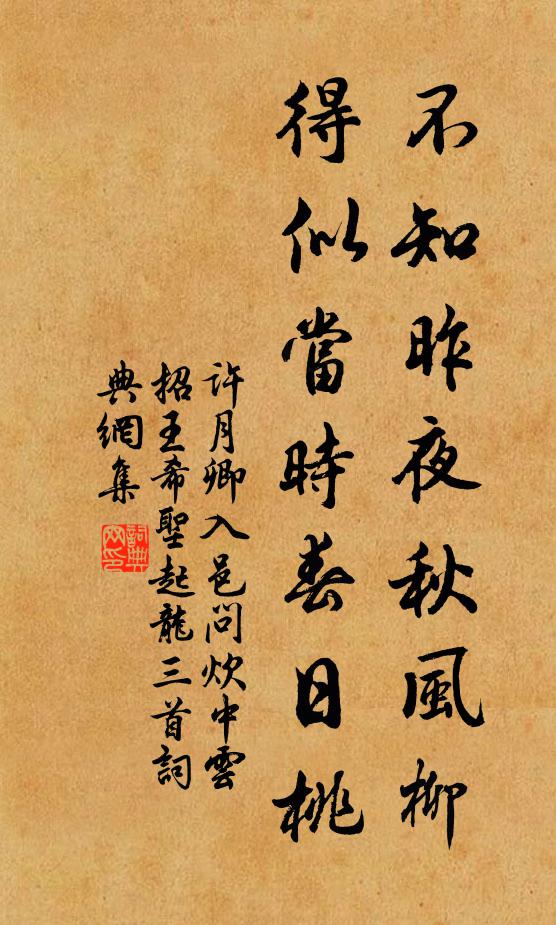 不知昨夜秋風柳
得似當時春日桃
許月卿入邑問炊中雲
招王希聖起龍三首詞
典網集
詞典
网印